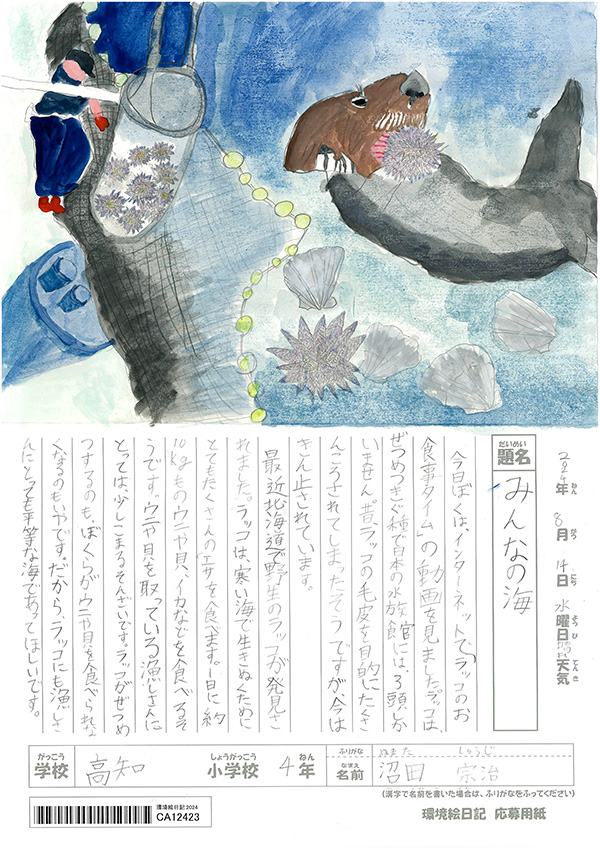 2024年 8月 14日 水曜日 晴天気
だいめい
題名
みんなの海
今日ぼくは、インターネットで「ラッコのお
食事タイム」の動画を見ました。ラッコは、
ぜつめつきぐ種で日本の水族館には、3頭しか
いません。昔ラッコの毛皮を目的にたくさ
んころされてしまったそうですが、今は
きん止されています。
最近北海道で野生のラッコが発見さ
れました。ラッコは、寒い海で生きぬくために
とてもたくさんのエサを食べます。1日に約
10kgものウニや貝、イカなどを食べるそ
うです。ウニや貝を取っている漁しさんに
とっては少しこまるそんざいです。ラッコがぜつめ
つするのも、ぼくらがウニや貝を食べられな
くなるのもいやです。だから、ラッコにも漁しさ
んにとっても平等な海であってほしいです。
がっこう
学校
高知
しょうがっこう
小学校
4年
ふりがな
ぬまた しゅうじ
なまえ
名前
沼田 宗治
(漢字で名前を書いた場合は、ふりがなをふってください)
環境絵日記2024
CA12423
環境絵日記 応募用紙